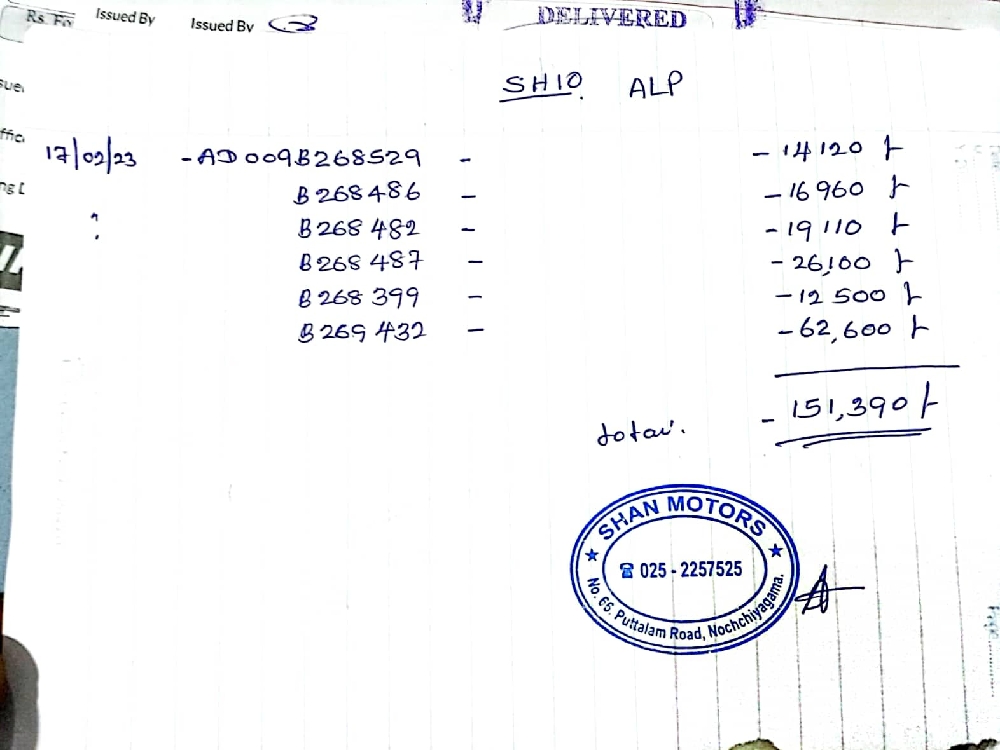 Rs. Fo Issued By Issued By
DELIVERED
SH10. ALP
17/02/23 - AD009B268529 - - 14120/-
B268486 - - 16960/-
B268482 - - 19110/-
B268487 - - 26,100/-
B268399 - - 12500/-
B269432 - - 62,600/-
total. - 151,390/-
SHAN MOTORS
☎ 025 - 2257525
No. 65, Puttalam Road, Nochchiyagama.